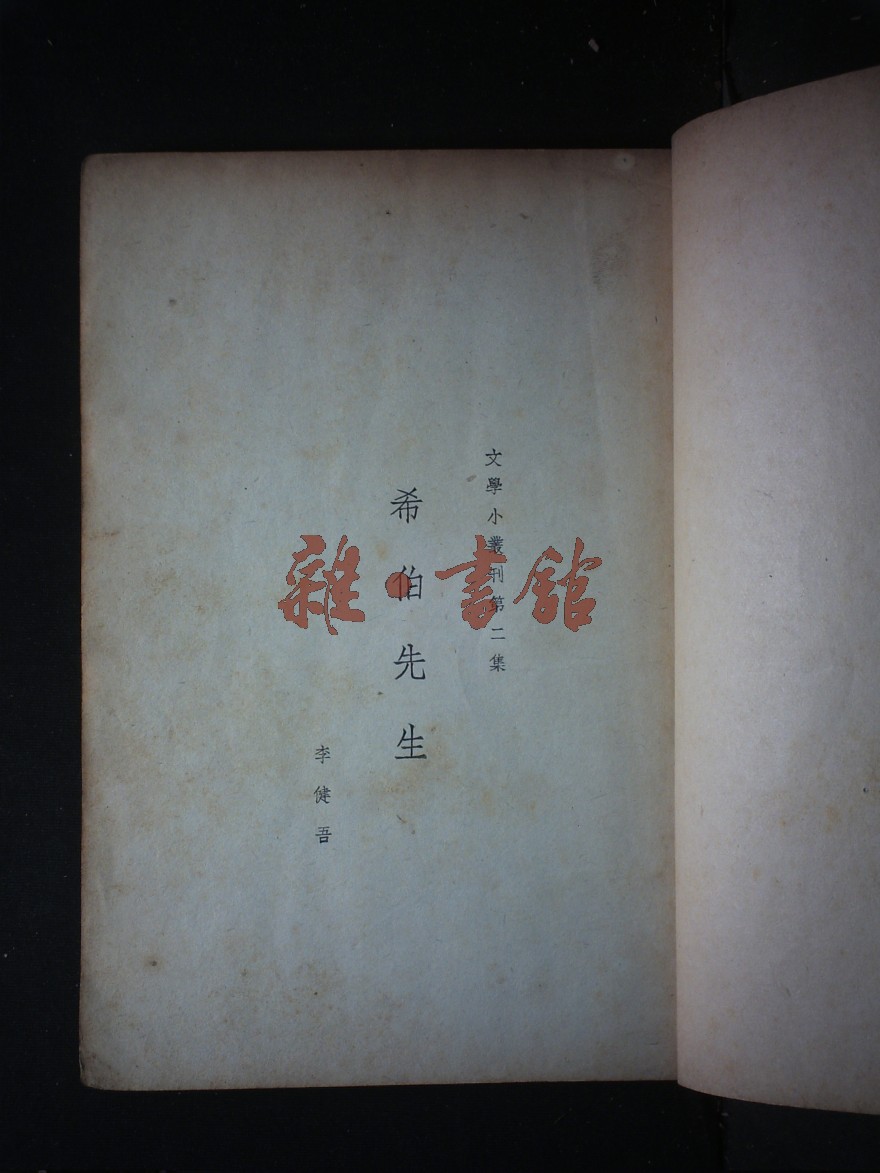 文學小叢刊第二集
希伯先生
李健吾
雜·書館